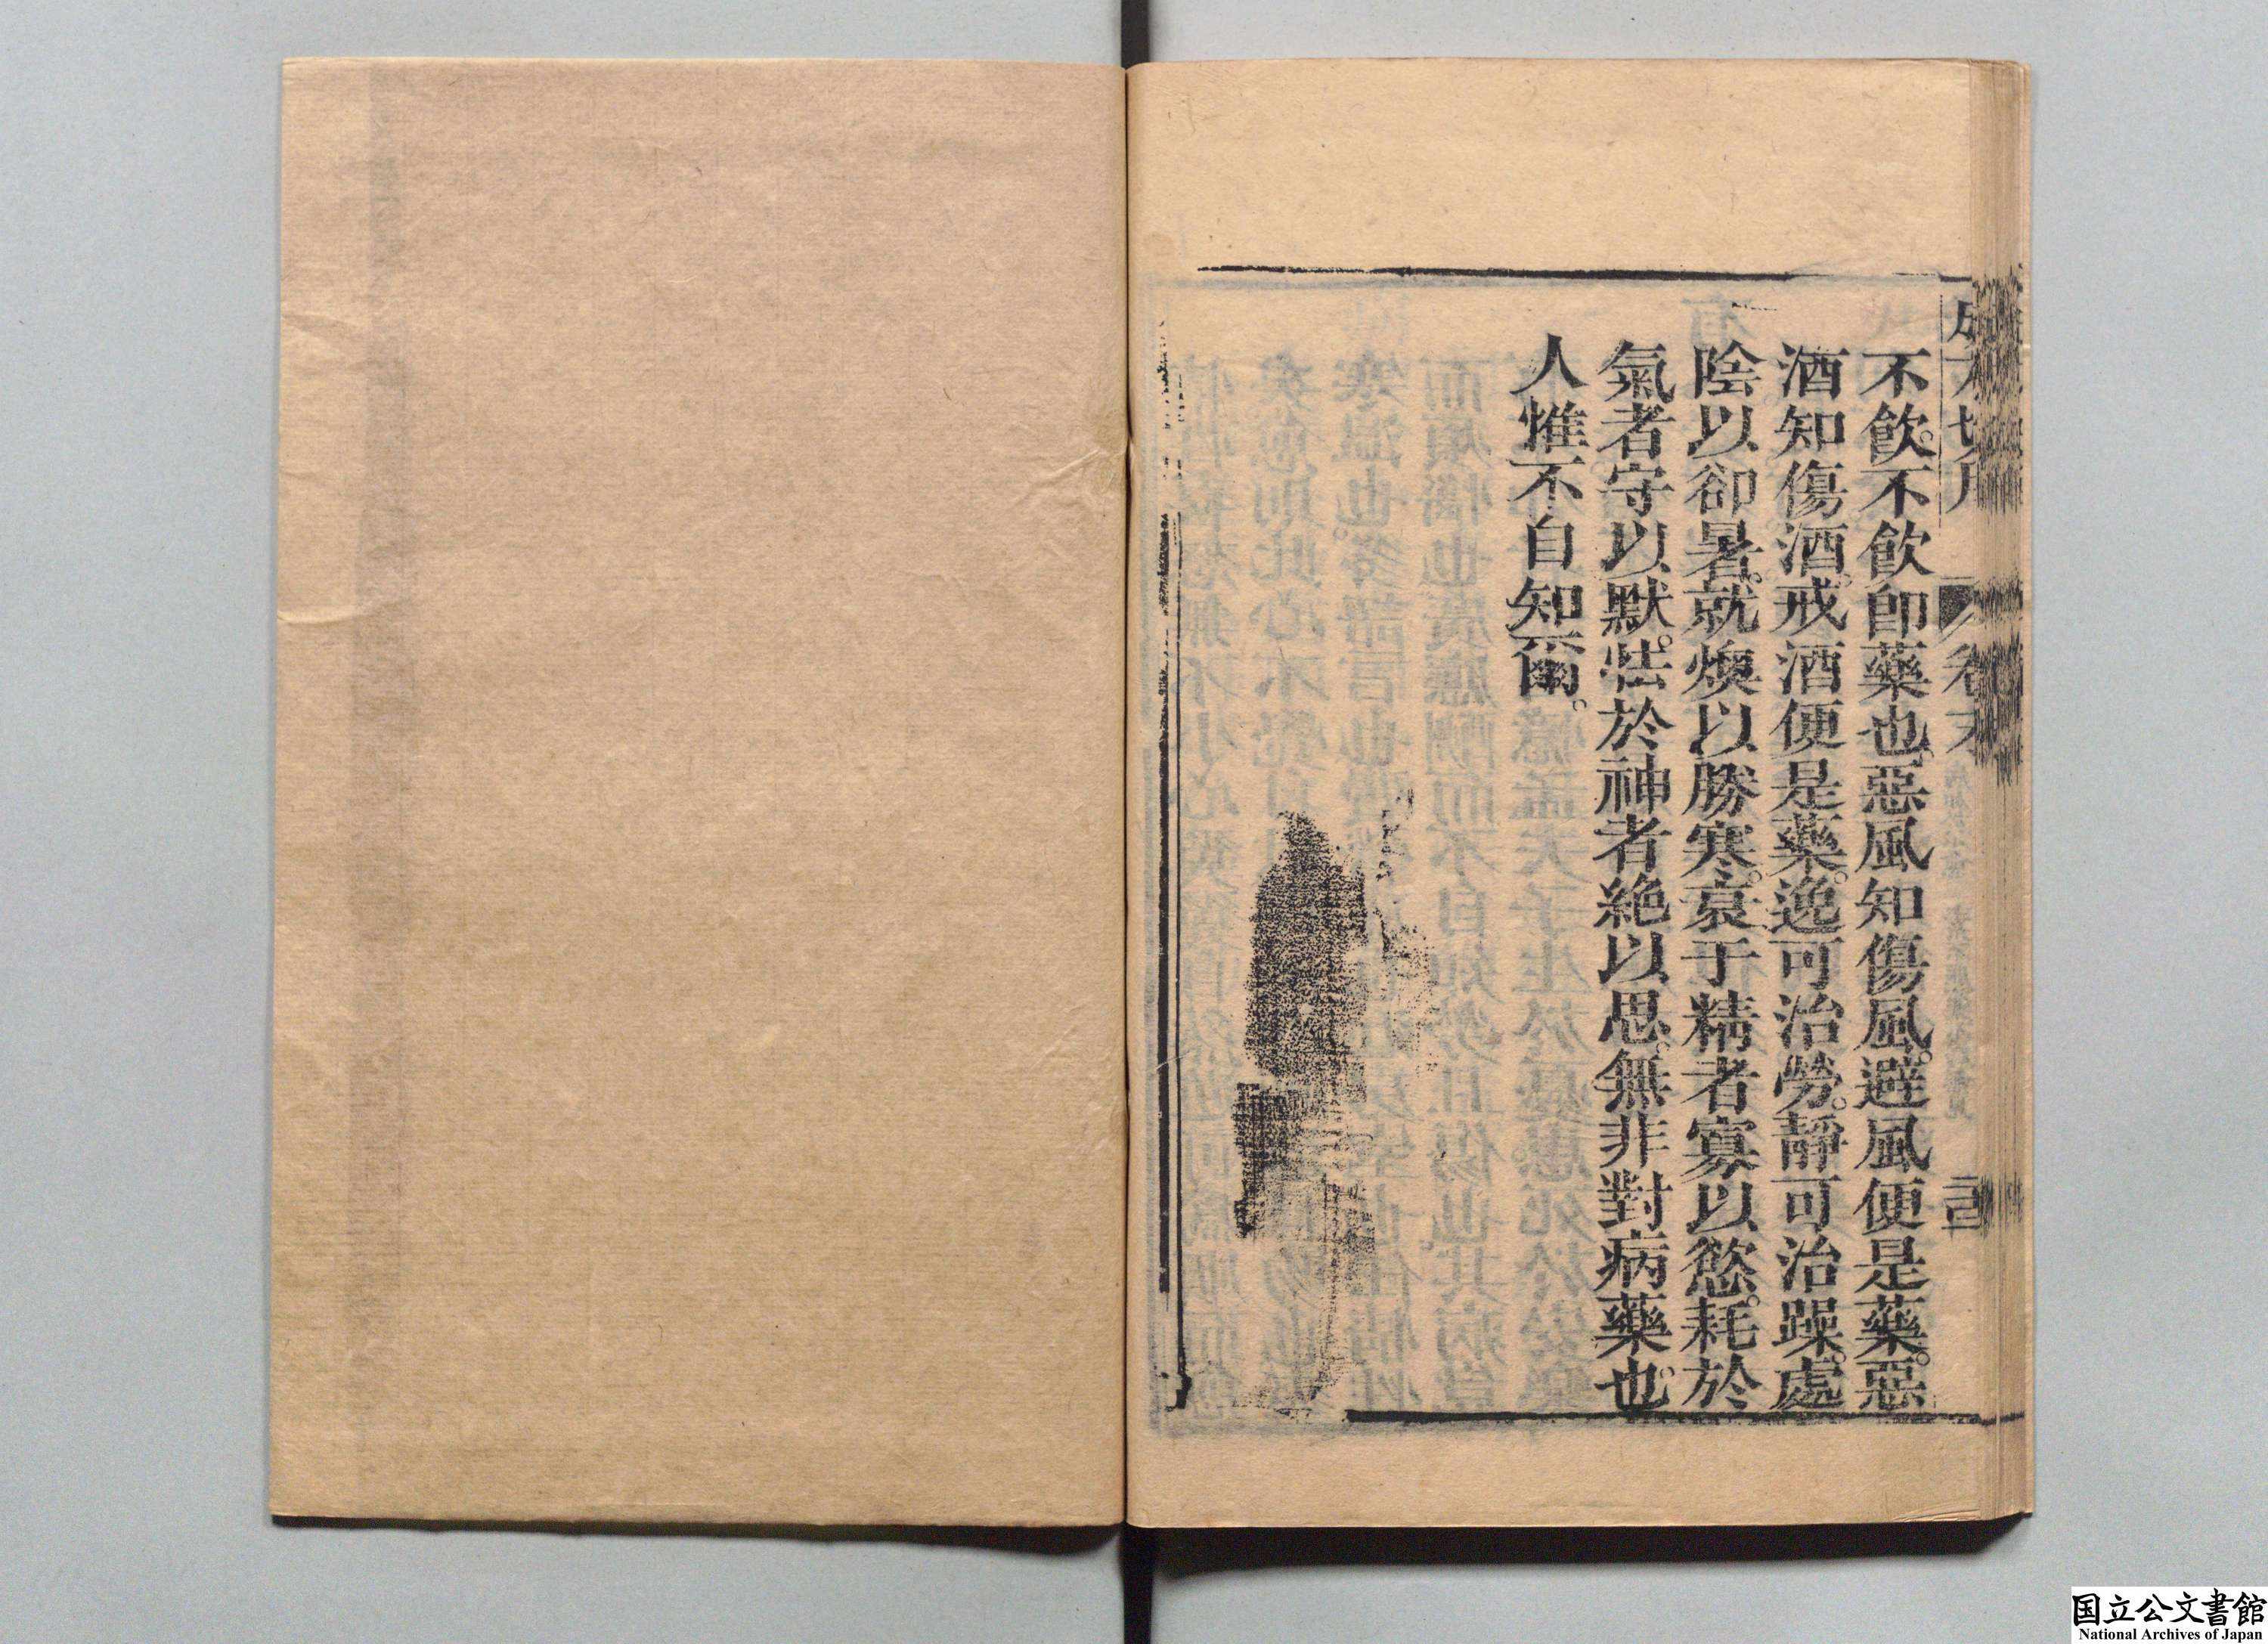 成方切用
卷末
不飲。不飲卽藥也。惡風知傷風。避風便是藥。惡
酒知傷酒。戒酒便是藥。逸可治勞。靜可治躁。處
陰以卻暑。就煥以勝寒。衰于精者寡以慾。耗於
氣者守以默。怯於神者絶以思。無非對病藥也。
人惟不自知爾。
国立公文書館
National Archives of Japan